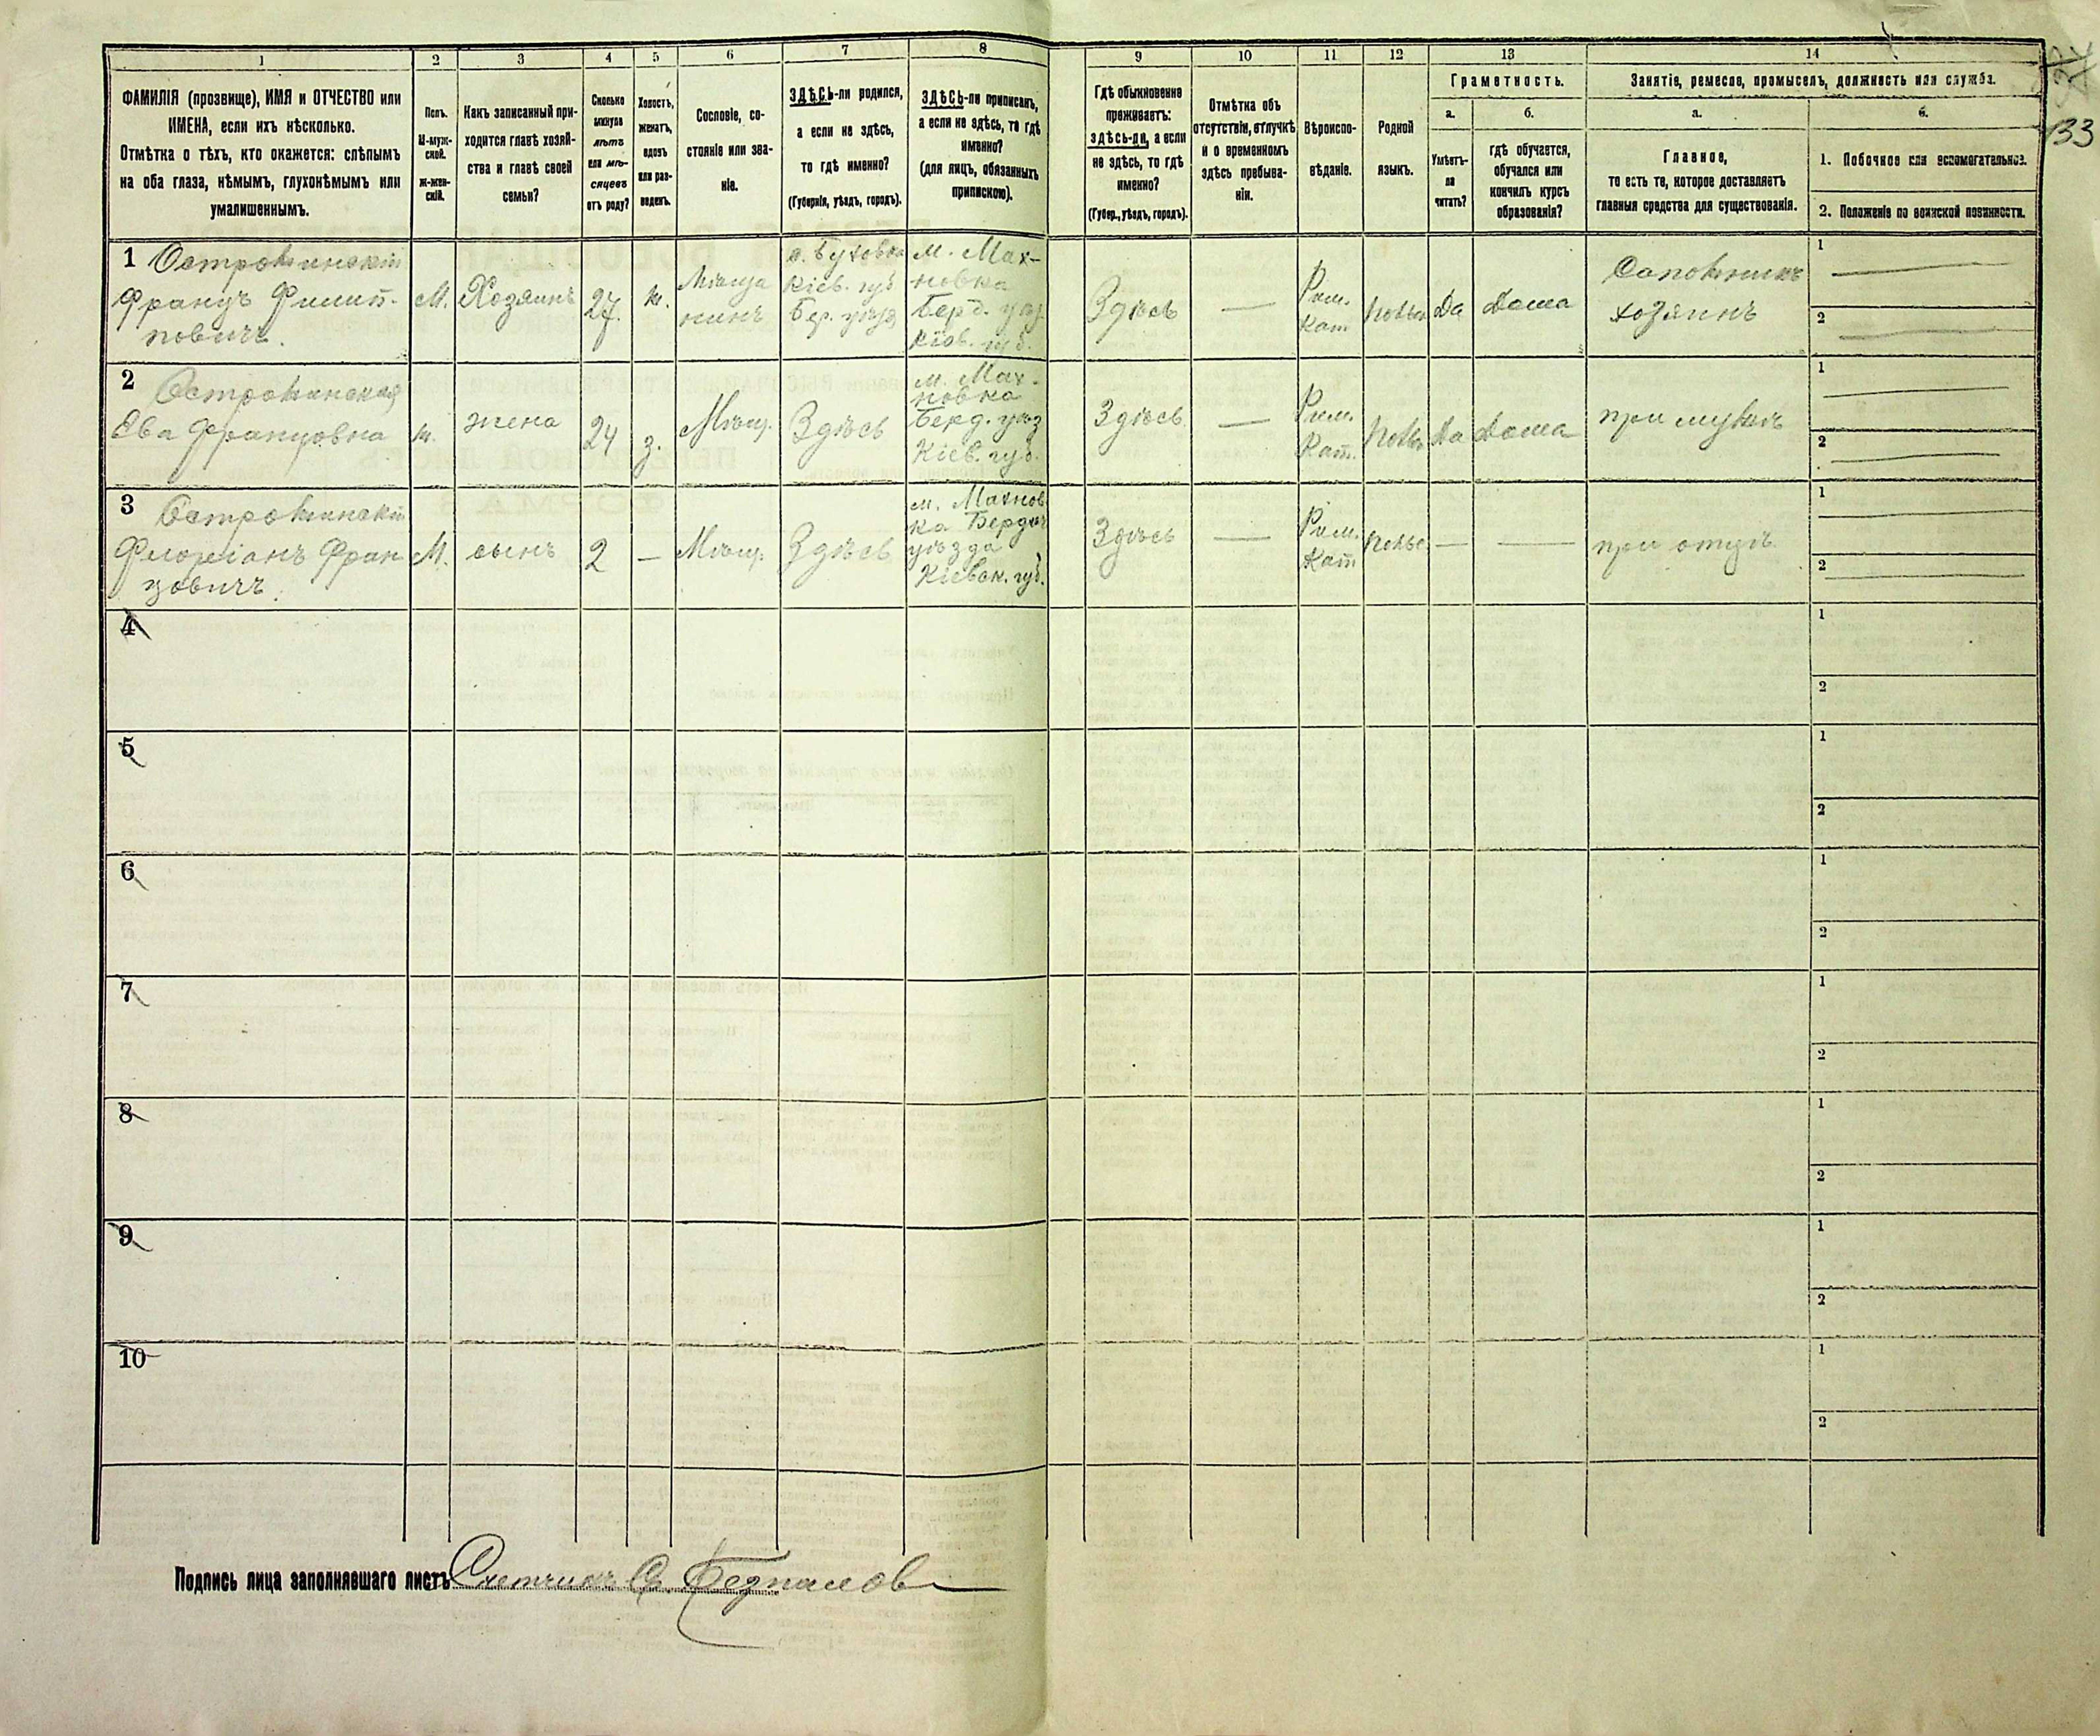 1 2 3 4 5 6 7 8 9 10 11 12 13 14
ФАМИЛІЯ (прозвище), ИМЯ и ОТЧЕСТВО или
ИМЕНА, если ихъ нѣсколько.
Отмѣтка о тѣхъ, кто окажется: слѣпымъ
на оба глаза, нѣмымъ, глухонѣмымъ или
умалишеннымъ.
Полъ.
М-муж-
ской.
ж-жен-
скій.
Какъ записанный при-
ходится главѣ хозяй-
ства и главѣ своей
семьи?
Сколько
минуло
лѣтъ
или мѣ-
сяцевъ
отъ роду?
Холостъ,
женатъ,
вдовъ
или раз-
веденъ.
Сословіе, со-
стояніе или зва-
ніе.
ЗДѢСЬ-ли родился,
а если не здѣсь,
то гдѣ именно?
(Губернія, уѣздъ, городъ).
ЗДѢСЬ-ли приписанъ,
а если не здѣсь, то гдѣ
именно?
(для лицъ, обязанныхъ
припискою).
Гдѣ обыкновенно
проживаетъ:
здѣсь-ли, а если
не здѣсь, то гдѣ
именно?
(Губер., уѣздъ, городъ).
Отмѣтка объ
отсутствіи, отлучкѣ
и о временномъ
здѣсь пребыва-
ніи.
Вѣроиспо-
вѣданіе.
Родной
языкъ.
Грамотность.
а.
Умѣетъ-
ли
читать?
б.
гдѣ обучается,
обучался или
кончилъ курсъ
образованія?
Занятіе, ремесло, промыселъ, должность или служба.
а.
Главное,
то есть то, которое доставляетъ
главныя средства для существованія.
б.
1. Побочное или вспомогательное.
2. Положеніе по воинской повинности.
133
1 Островинскій
Францъ Филип-
повичъ.
М.
Хозяинъ
27.
ж.
Мѣща
нинъ
Кіев. губ
Бер. уѣзд
м. Мах-
новка
Берд. уѣз.
Кіев. губ.
Здѣсь
—
Рим.
Кат
Польс
Да
Дома
Сапожникъ
хозяинъ
1 —
2 —
2
Ева Францовна
ж.
жена
24
з.
Мѣщ.
Здѣсь
м. Мах-
новка
Берд. уѣз
Кіев. губ.
Здѣсь
—
Рим.
Кат.
Польс
Да
Дома
при мужѣ
1 —
2 —
3
Флоріанъ Фран
цовичъ.
М.
сынъ
2
—
Мѣщ.
Здѣсь
м. Махнов
ка Бердич
уѣзда
Кіевск. губ.
Здѣсь
—
Рим.
Кат
Польс
—
—
при отцѣ
1 —
2 —
4
1
2
5
1
2
6
1
2
7
1
2
8
1
2
9
1
2
10
1
2
Подпись лица заполнявшаго листъ Счетчикъ